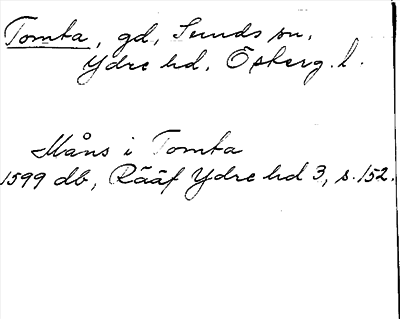 Tomta, gd, Sunds sn,
Ydre hd, Österg. l.
Måns i Tomta
1599 db, Rääf Ydre hd 3, s. 152.